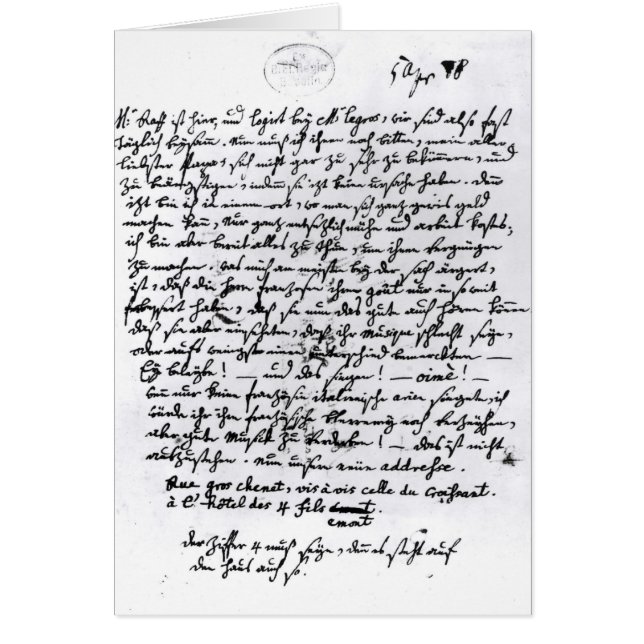 5 Apr 78
Mr: Raff ist hier, und logirt bey Mr legros, wir sind also fast
täglich beysam. Nun muß ich ihnen noch bitten, mein aller=
liebster Papa, sich nicht gar zu sehr zu bekümmern, und
zu beängstigen, indemm sie izt keine ursache haben. denn
izt bin ich in einem ort, wo man sich ganz gewis geld
machen kann, Nur ganz entsezlich mühe und arbeit kostets,
ich bin aber bereit alles zu thun, um ihnen vergnügen
zu machen. was mich am meisten bey der sach ärgert,
ist, daß die herrn franzosen ihren goût nur in so weit
verbessert haben, daß sie nun das gute auch hören können
daß sie aber einseheten, daß ihr Musique schlecht seye,
oder aufs wenigste einen unterschied bemerckten —
Ey beleybe! — und das singen! — oimè! —
wenn nur keine französin italienische arien süngete, ich
würde ihr ihre französische Plererey noch verzeyhen,
aber gute Musik zu verderben! — das ist nicht
auszustehen. Nun unsere neüe addresse.
Rue gros chenet, vis à vis celle du Croissant.
à l'hôtel des 4 fils
emont
der Ziffer 4 muß seyn, denn es steht auf
den haus auch so.